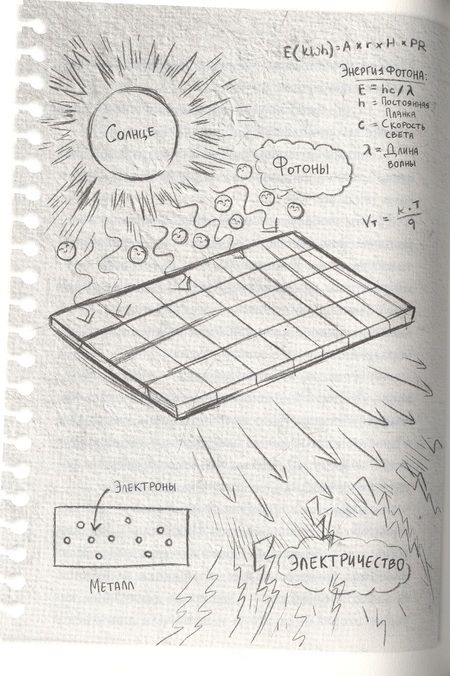 E(kWh) = A × r × H × PR
Энергия Фотона:
E = hc/λ
h = Постоянная
Планка
c = Скорость
света
λ = Длина
волны
Солнце
Фотоны
V_T = k·T/q
Электроны
Металл
Электричество